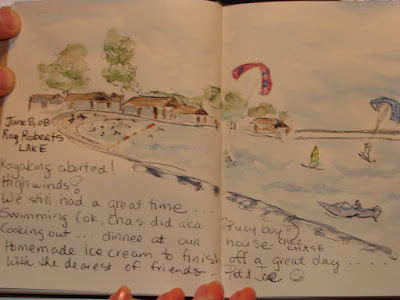 June 8, 08
Ray Roberts
LAKE
Kayaking aborted!
High winds?
We still had a great time...
Swimming (ok, chas did aka "Buoy boy")
Cooking out... dinner at our house - CHEZ CHASE
Homemade ice cream to finish off a great day......
With the dearest of friends - Pat & Joe